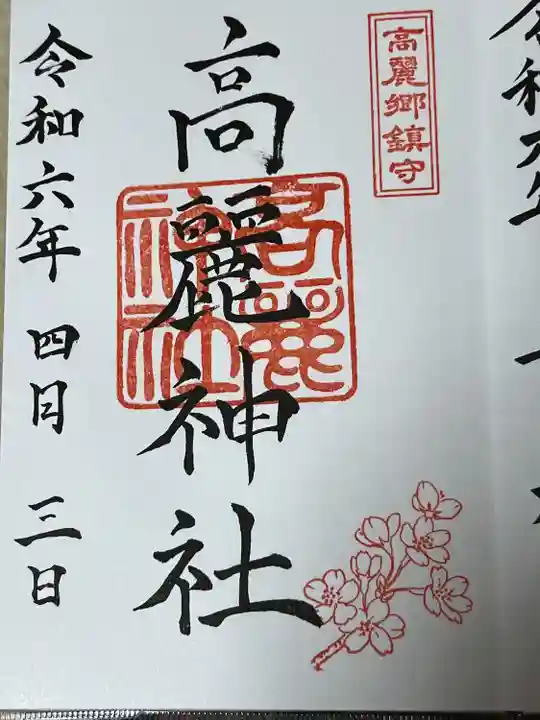 高麗郷鎮守
高麗神社
高麗
神社
令和六年 四月 三日